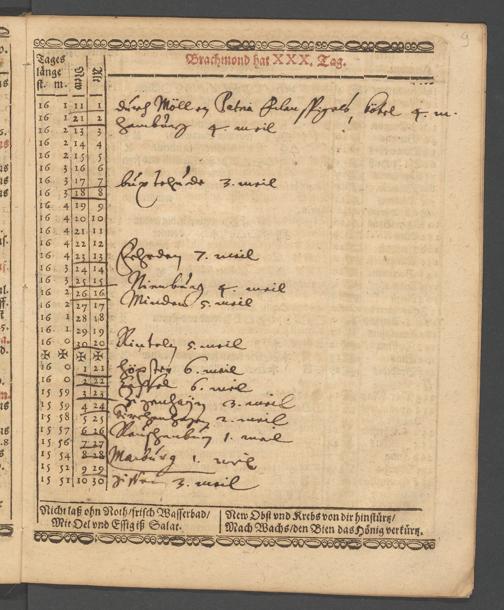 9
Brachmond hat XXX. Tag.
Tages
länge
st. m.
16 1 11 1
16 1 21 2
16 2 13 3
16 2 14 4
16 2 15 5
16 3 16 6
16 3 17 7
16 3 18 8
16 4 19 9
16 4 20 10
16 4 21 11
16 4 22 12
16 3 23 13
16 3 24 14
16 3 25 15
16 2 26 16
16 2 27 17
16 1 28 18
16 1 29 19
16 0 30 20
✠ ✠ ✠ ✠
16 0 1 21
16 0 2 22
15 59 3 23
15 59 4 24
15 58 5 25
15 57 6 26
15 56 7 27
15 54 8 28
15 52 9 29
15 51 10 30
durch Möllen 4. m.
Hamburg 4. meil
buxtehude 3. meil
7. meil
Nienburg 4. meil
Minden 5. meil
Rinteln 5. meil
höxter 6. meil
Cassel 6. meil
3. meil
2. meil
Rauschenburg 1. meil
Marburg 1. meil
Gissen 3. meil
Nicht laß ohn Noth/frisch Wasserbad/
Mit Oel vnd Essig iß Salat.
New Obst vnd Krebs von dir hinstürtz/
Mach Wachs/den Bien das Hönig verkürtz.